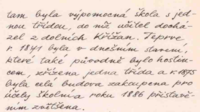 tam byla výpomocná škola s jed-
nou třídou, do níž učitel dochá-
zel z dolních Křižan. Teprve
r. 1841 byla v dnešním stavení,
které také původně bylo hostin-
cem, zřízena jedna třída a r. 1875
byla celá budova zakoupena pro
účely školní a roku 1886 přístav-
ním zvětšena.